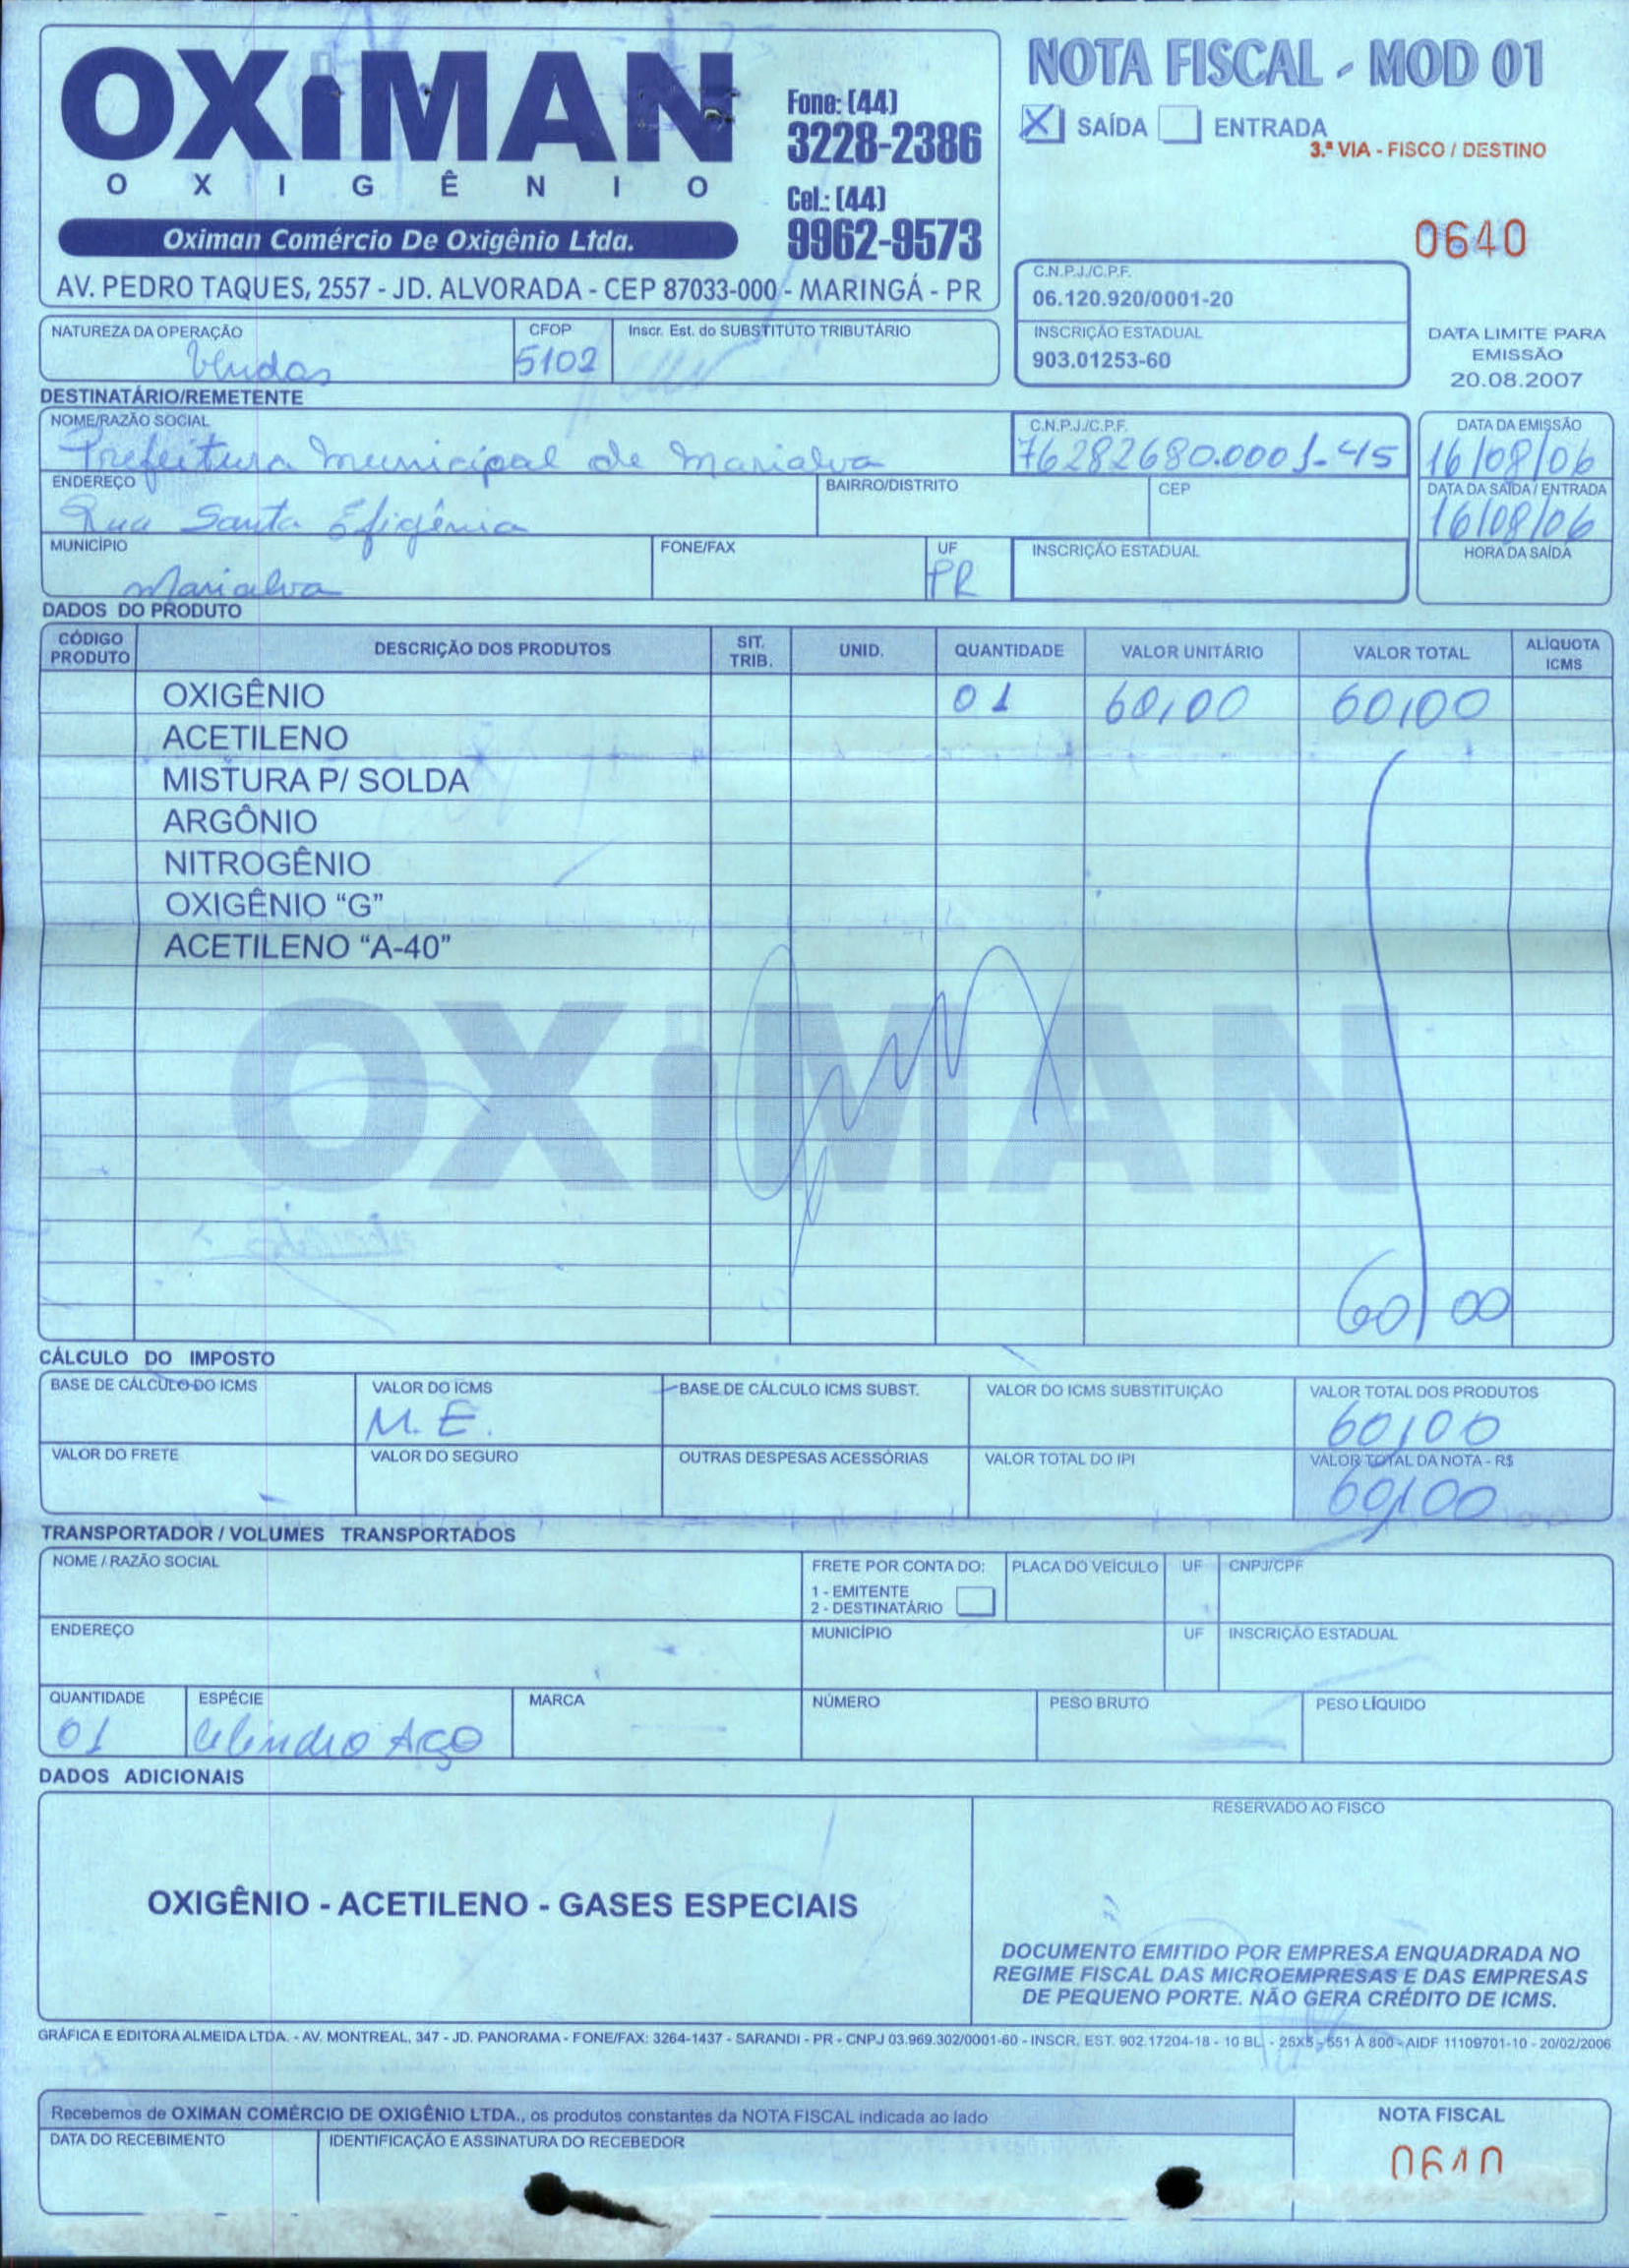 OXiMAN
OXIGÊNIO
Oximan Comércio De Oxigênio Ltda.
Fone: (44)
3228-2386
Cel.: (44)
9962-9573
AV. PEDRO TAQUES, 2557 - JD. ALVORADA - CEP 87033-000 - MARINGÁ - PR
NOTA FISCAL - MOD 01
X SAÍDA ENTRADA
3.ª VIA - FISCO / DESTINO
0640
C.N.P.J./C.P.F.
06.120.920/0001-20
INSCRIÇÃO ESTADUAL
903.01253-60
DATA LIMITE PARA
EMISSÃO
20.08.2007
NATUREZA DA OPERAÇÃO CFOP Inscr. Est. do SUBSTITUTO TRIBUTÁRIO
Vendas 5102
DESTINATÁRIO/REMETENTE
NOME/RAZÃO SOCIAL C.N.P.J./C.P.F. DATA DA EMISSÃO
Prefeitura Municipal de Marialva 76282680.0001-45 16/08/06
ENDEREÇO BAIRRO/DISTRITO CEP DATA DA SAÍDA / ENTRADA
Rua Santa Efigênia 16/08/06
MUNICÍPIO FONE/FAX UF INSCRIÇÃO ESTADUAL HORA DA SAÍDA
Marialva PR
DADOS DO PRODUTO
CÓDIGO PRODUTO DESCRIÇÃO DOS PRODUTOS SIT. TRIB. UNID. QUANTIDADE VALOR UNITÁRIO VALOR TOTAL ALÍQUOTA ICMS
OXIGÊNIO 01 60,00 60,00
ACETILENO
MISTURA P/ SOLDA
ARGÔNIO
NITROGÊNIO
OXIGÊNIO “G”
ACETILENO “A-40”
OXiMAN
60,00
CÁLCULO DO IMPOSTO
BASE DE CÁLCULO DO ICMS VALOR DO ICMS BASE DE CÁLCULO ICMS SUBST. VALOR DO ICMS SUBSTITUIÇÃO VALOR TOTAL DOS PRODUTOS
M.E. 60,00
VALOR DO FRETE VALOR DO SEGURO OUTRAS DESPESAS ACESSÓRIAS VALOR TOTAL DO IPI VALOR TOTAL DA NOTA - R$
60,00
TRANSPORTADOR / VOLUMES TRANSPORTADOS
NOME / RAZÃO SOCIAL FRETE POR CONTA DO: PLACA DO VEÍCULO UF CNPJ/CPF
1 - EMITENTE
2 - DESTINATÁRIO
ENDEREÇO MUNICÍPIO UF INSCRIÇÃO ESTADUAL
QUANTIDADE ESPÉCIE MARCA NÚMERO PESO BRUTO PESO LÍQUIDO
01 Cilindro Aço
DADOS ADICIONAIS
RESERVADO AO FISCO
OXIGÊNIO - ACETILENO - GASES ESPECIAIS
DOCUMENTO EMITIDO POR EMPRESA ENQUADRADA NO
REGIME FISCAL DAS MICROEMPRESAS E DAS EMPRESAS
DE PEQUENO PORTE. NÃO GERA CRÉDITO DE ICMS.
GRÁFICA E EDITORA ALMEIDA LTDA. - AV. MONTREAL, 347 - JD. PANORAMA - FONE/FAX: 3264-1437 - SARANDI - PR - CNPJ 03.969.302/0001-60 - INSCR. EST. 902.17204-18 - 10 BL. - 25X5 - 551 À 800 - AIDF 11109701-10 - 20/02/2006
Recebemos de OXIMAN COMÉRCIO DE OXIGÊNIO LTDA., os produtos constantes da NOTA FISCAL indicada ao lado
NOTA FISCAL
DATA DO RECEBIMENTO IDENTIFICAÇÃO E ASSINATURA DO RECEBEDOR
0640